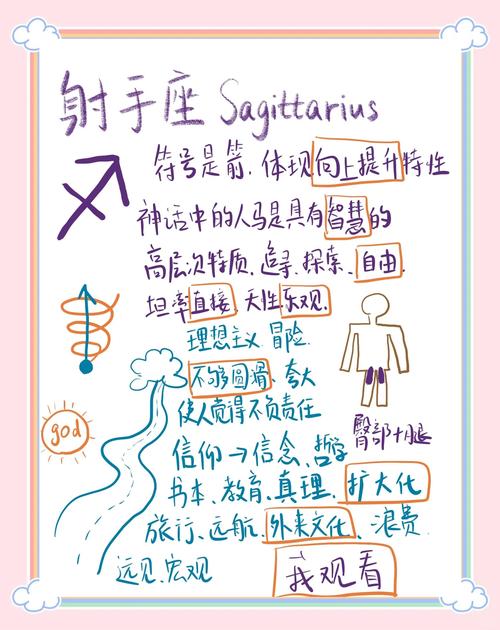 射手座 Sagittarius
符号是箭、体现向上提升特性
神话中的人马是具有智慧的
高层次特质、追寻、探索、自由、
坦率直接、天性乐观、
理想主义 冒险
不够圆滑、夸大
使人觉得不负责任
臀部+大腿
god
信仰→信念、哲学
书本、教育、真理、扩大化
旅行、远航、外来文化、浪费
远见、宏观
我观看